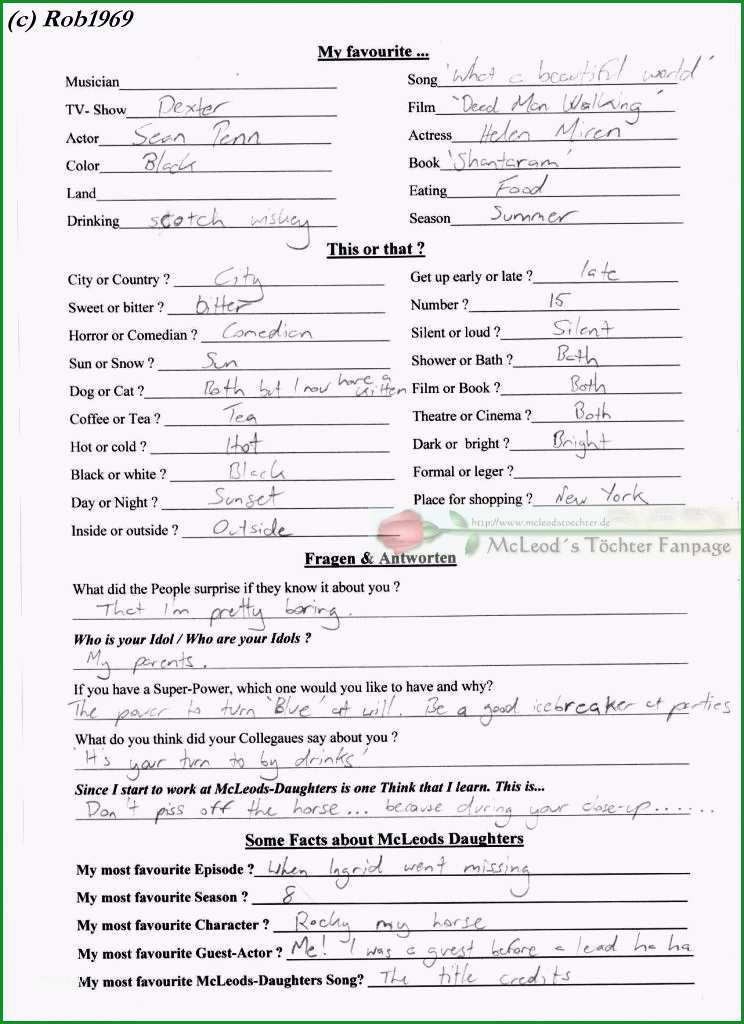 (c) Rob1969
My favourite ...
Musician
Song 'What a beautiful world'
TV- Show Dexter
Film 'Dead Man Walking'
Actor Sean Penn
Actress Helen Miren
Color Black
Book 'Shantaram'
Land
Eating Food
Drinking scotch wiskey
Season Summer
This or that ?
City or Country ? City
Get up early or late ? late
Sweet or bitter ? bitter
Number ? 15
Horror or Comedian ? Comedian
Silent or loud ? Silent
Sun or Snow ? Sun
Shower or Bath ? Bath
Dog or Cat ? Both but I now have a kitten
Film or Book ? Both
Coffee or Tea ? Tea
Theatre or Cinema ? Both
Hot or cold ? Hot
Dark or bright ? Bright
Black or white ? Black
Formal or leger ?
Day or Night ? Sunset
Place for shopping ? New York
Inside or outside ? Outside
http://www.mcleodstoechter.de
McLeod´s Töchter Fanpage
Fragen & Antworten
What did the People surprise if they know it about you ?
That I'm pretty boring.
Who is your Idol / Who are your Idols ?
My parents.
If you have a Super-Power, which one would you like to have and why?
The power to turn 'Blue' at will. Be a good icebreaker at parties
What do you think did your Collegaues say about you ?
'It's your turn to by drinks'
Since I start to work at McLeods-Daughters is one Think that I learn. This is...
Don't piss off the horse... because during your close-up......
Some Facts about McLeods Daughters
My most favourite Episode ? When Ingrid went missing
My most favourite Season ? 8
My most favourite Character ? Rocky my horse
My most favourite Guest-Actor ? Me! I was a guest before a lead ha ha
My most favourite McLeods-Daughters Song? The title credits